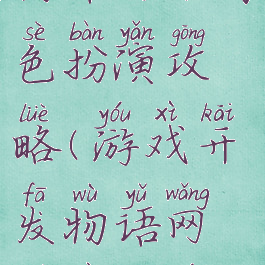 sè bàn yǎn gōng
色扮演攻
lüè yóu xì kāi
略(游戏开
fā wù yǔ wǎng
发物语网